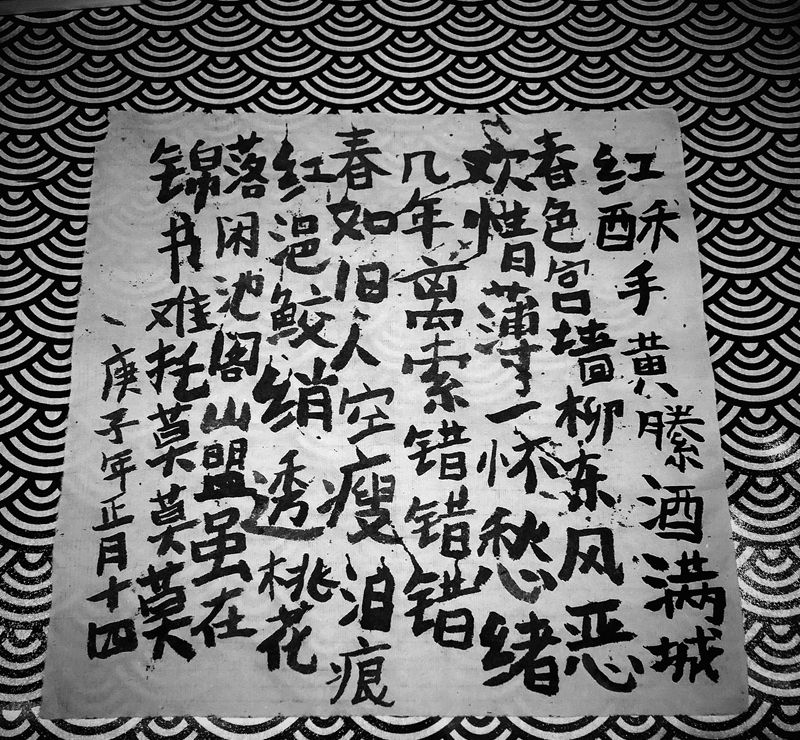 红酥手黄縢酒满城
春色宫墙柳东风恶
欢惜薄一怀愁绪
几年离索错错错
春如旧人空瘦泪痕
红浥鲛绡透桃花
落闲池阁山盟虽在
锦书难托莫莫莫
庚子年正月十四